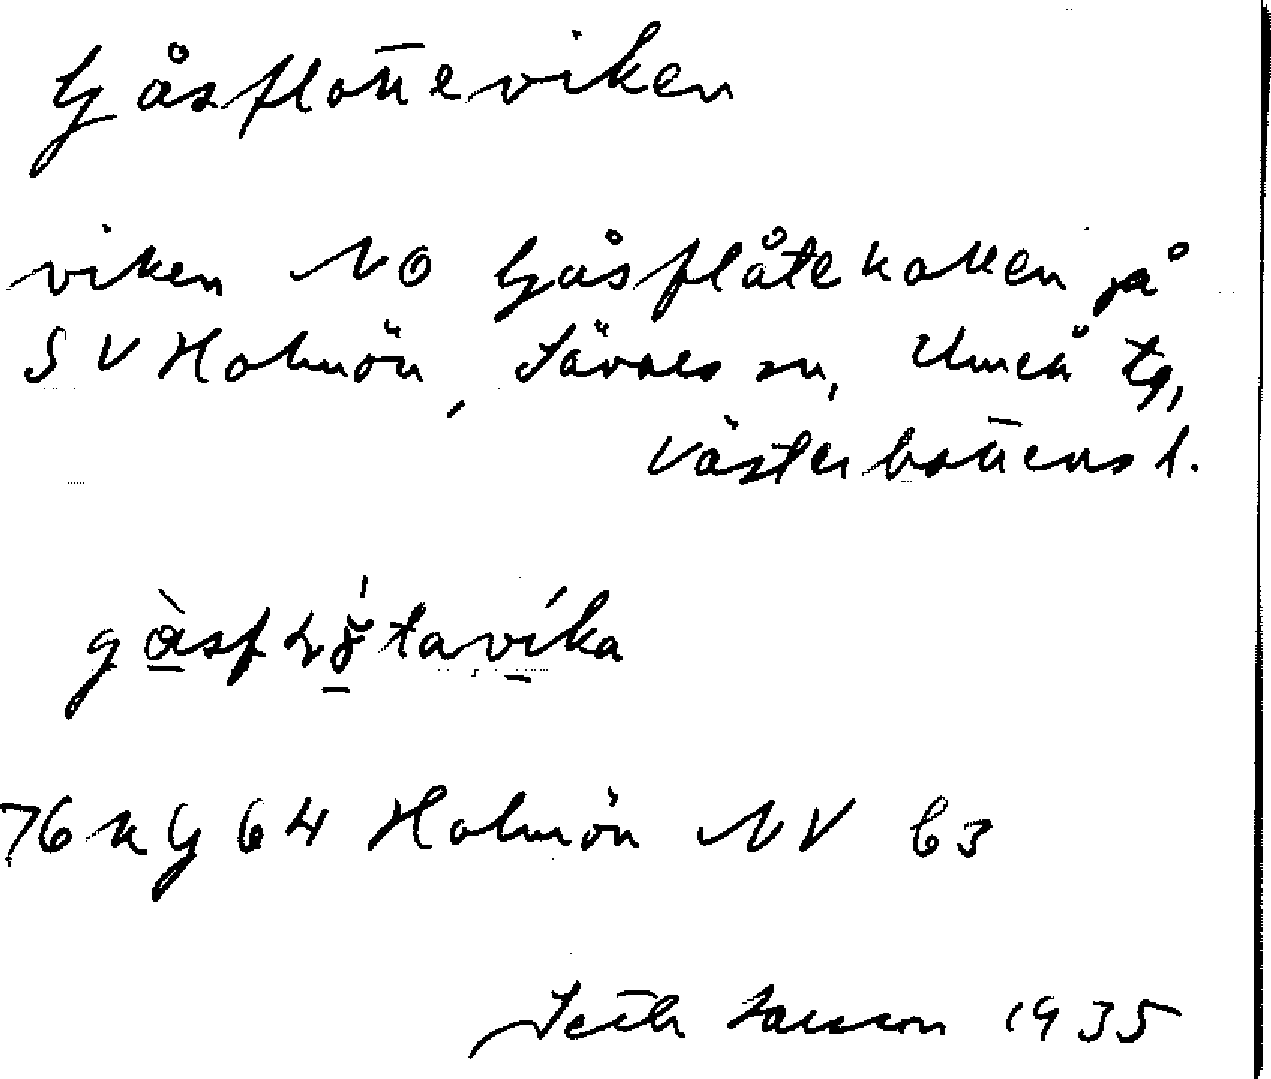 Gåsflotteviken
viken NO Gåsflåtekallen på
SV Holmön, Sävars sn, Umeå tg,
Västerbottens l.
76 KG 64 Holmön NV 63
Seth Larsson 1935